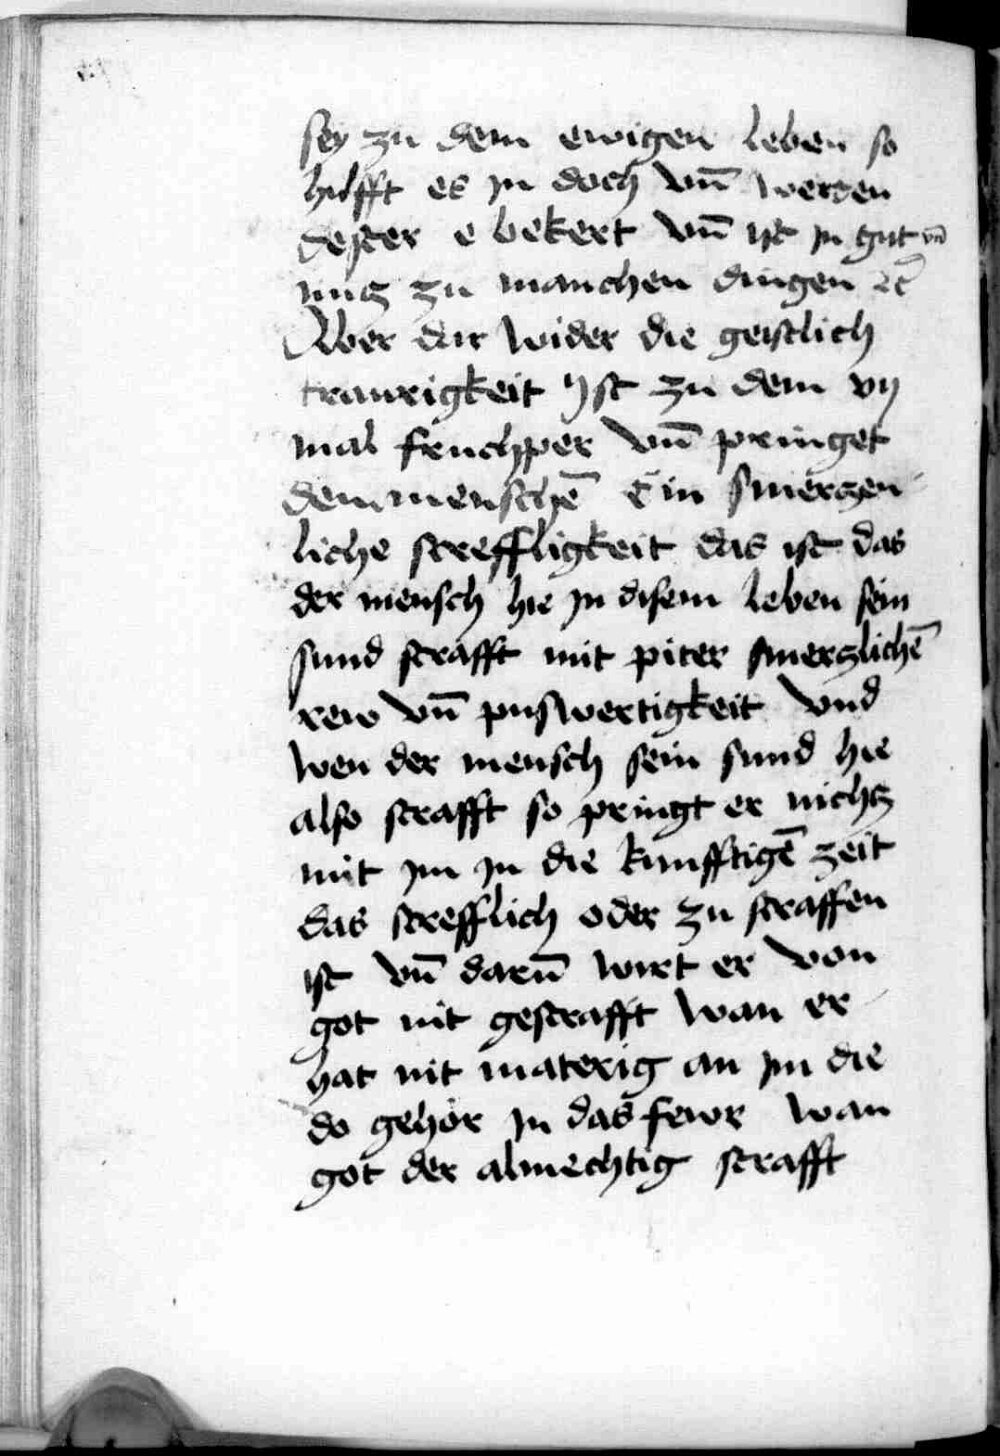 sey zu dem ewigen leben so
hilfft es jn doch vnd̄ werden
dester e bekert vn̄ ist jn gut vn̄
nucz zu manchen dingen ⁊c̄
Aber dar wider die geistlich
traurigkeit yst zu dem vij
mal fruchper vn̄ pringet
dem menschē Ein smerczen
liche strefflligkeit das ist das
der mensch hie jn disem leben sein
sund strafft mit piter smerczlichē
rew vn̄ puswertigkeit vnd
wen der mensch sein sund hie
also strafft so pringt er nichcz
mit jm jn die kunfftigē zeit
das strefflich oder zu straffen
ist vn̄ darū wirt er von
got nit gestrafft wan er
hat nit materig an jm die
do gehör jn das fewr wan
got der almechtig strafft